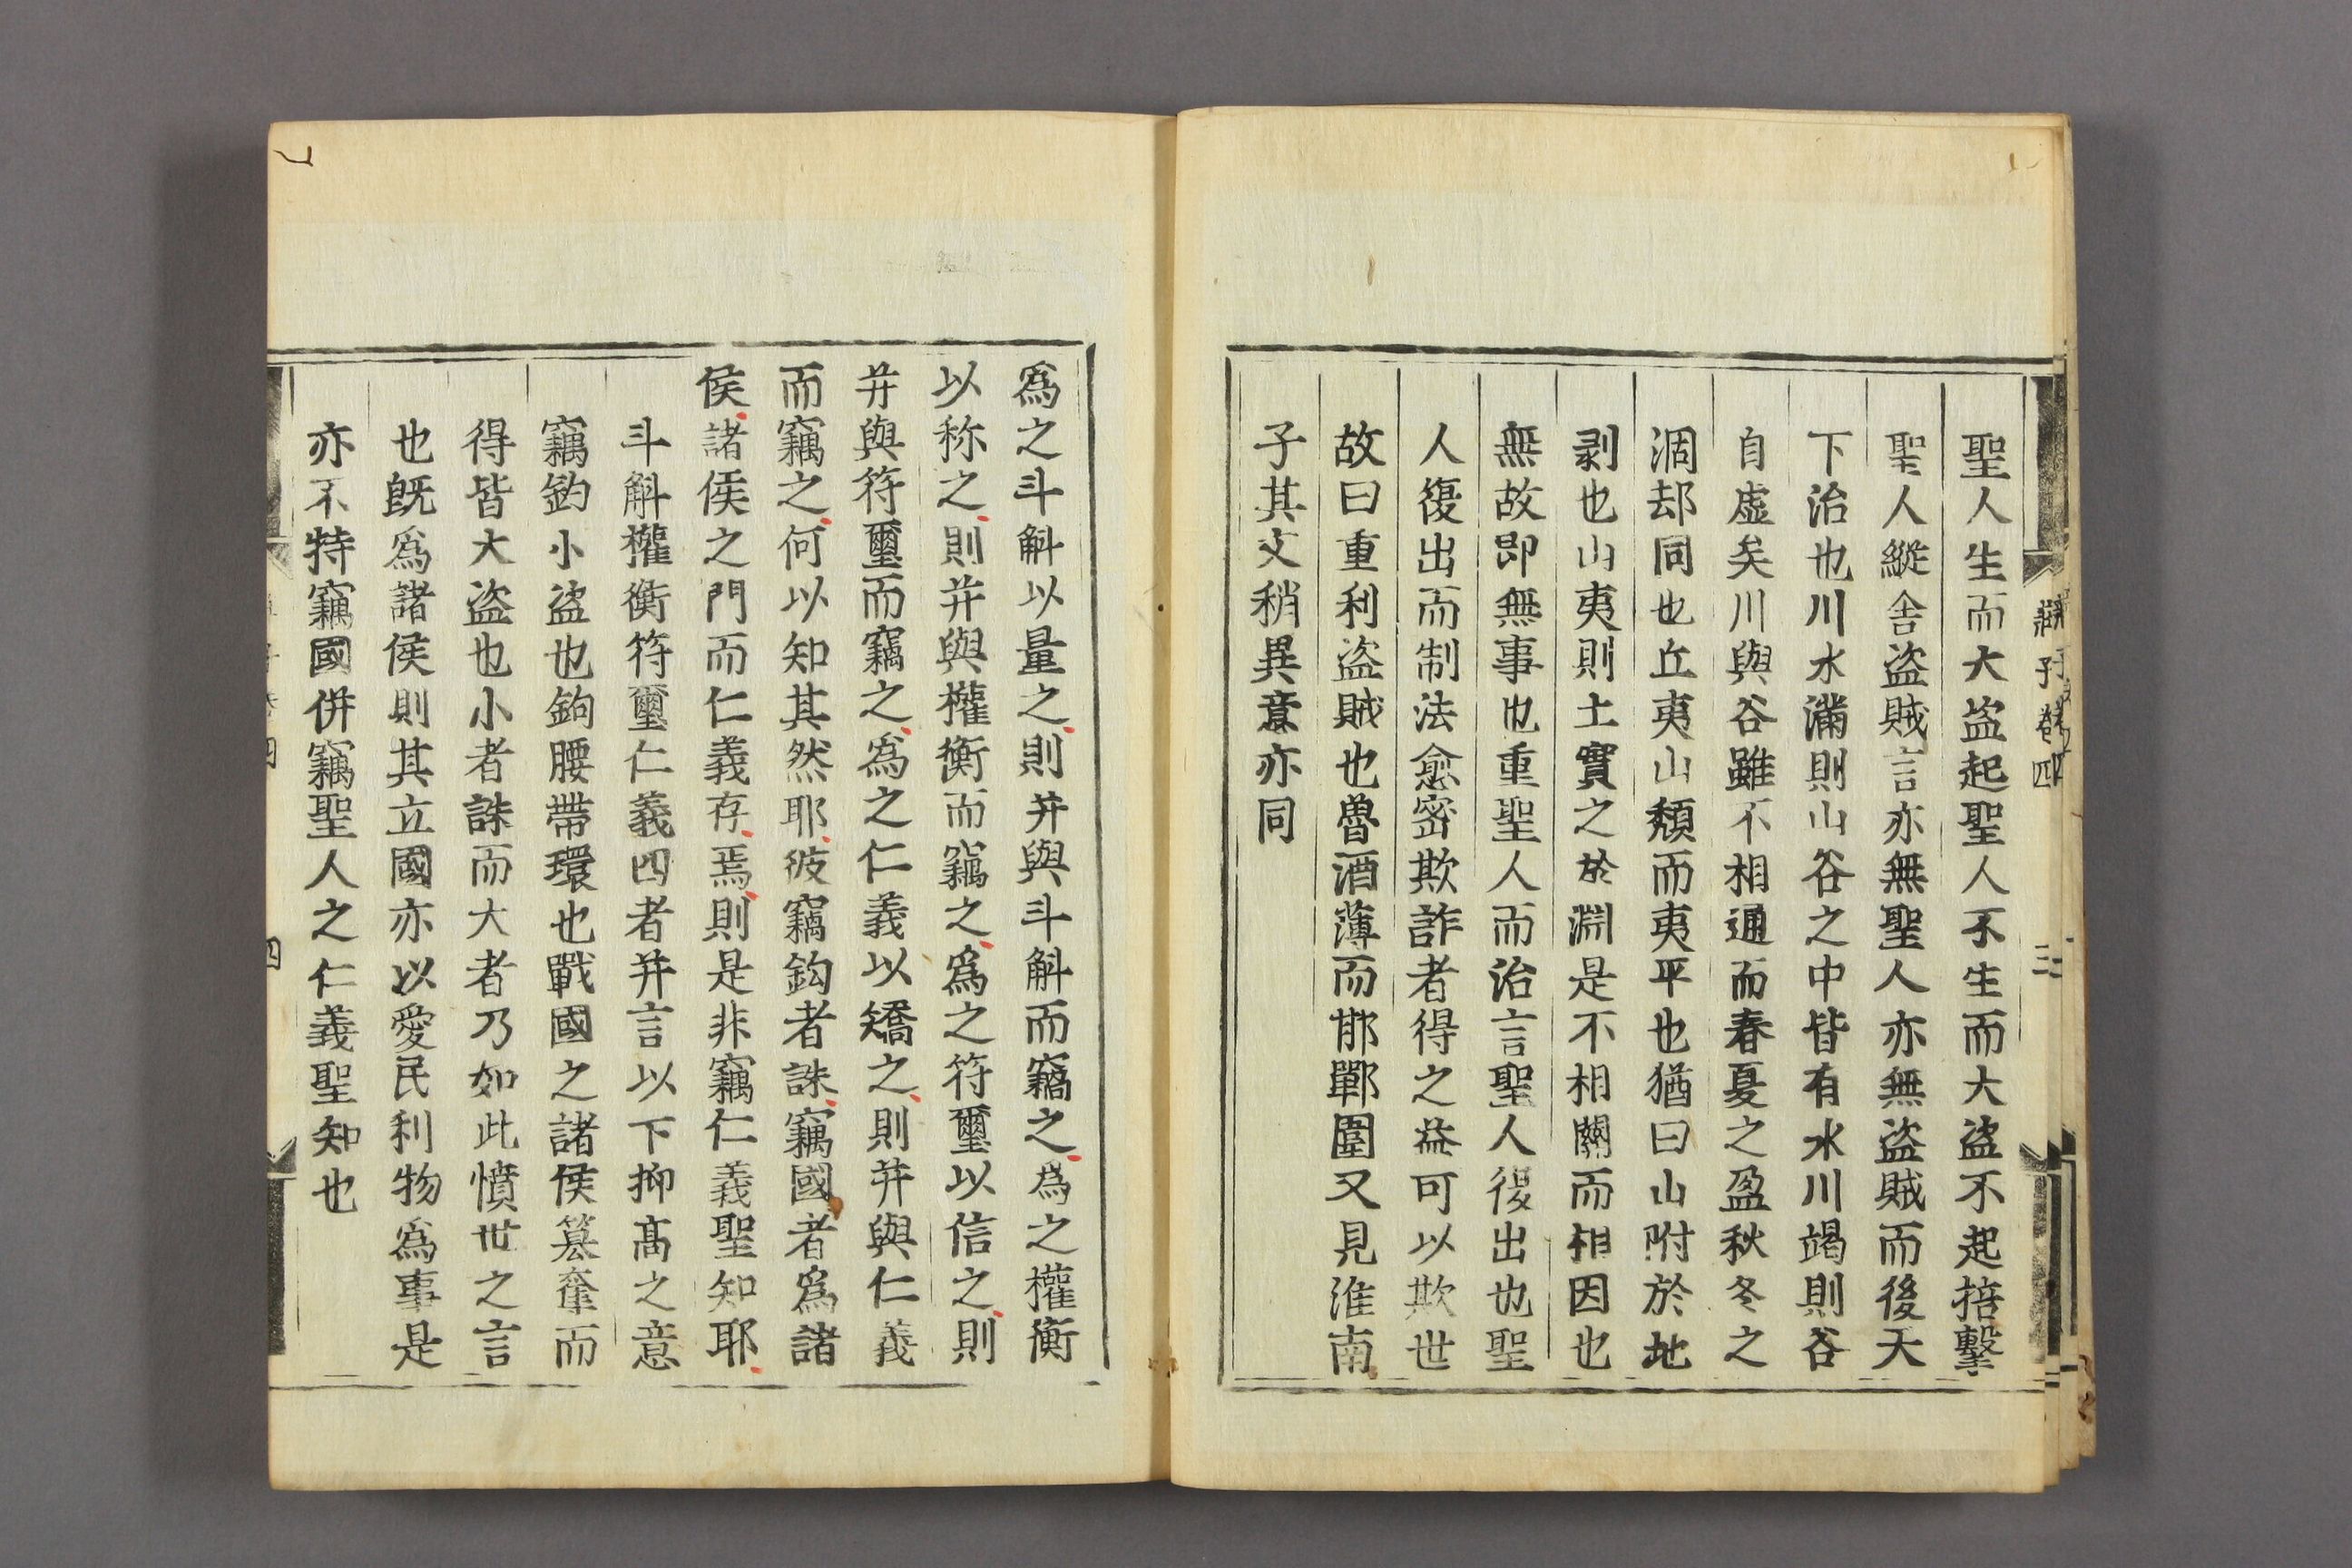 莊子卷四
三
聖人生而大盗起聖人不生而大盗不起掊擊
聖人縱舍盗賊言亦無聖人亦無盗賊而後天
下治也川水滿則山谷之中皆有水川竭則谷
自虛矣川與谷雖不相通而春夏之盈秋冬之
涸却同也丘夷山頹而夷平也猶曰山附於地
剥也山夷則土實之於淵是不相關而相因也
無故即無事也重聖人而治言聖人復出也聖
人復出而制法愈密欺詐者得之益可以欺世
故曰重利盗賊也魯酒薄而邯鄲圍又見淮南
子其文稍異意亦同
爲之斗斛以量之則并與斗斛而竊之爲之權衡
以称之則并與權衡而竊之爲之符璽以信之則
并與符璽而竊之爲之仁義以矯之則并與仁義
而竊之何以知其然耶彼竊鈎者誅竊國者爲諸
侯諸侯之門而仁義存焉則是非竊仁義聖知耶
斗斛權衡符璽仁義四者并言以下抑髙之意
竊鈎小盗也鉤腰帶環也戰國之諸侯簒奪而
得皆大盗也小者誅而大者乃如此憤世之言
也旣爲諸侯則其立國亦以愛民利物爲事是
亦不特竊國併竊聖人之仁義聖知也
四
四